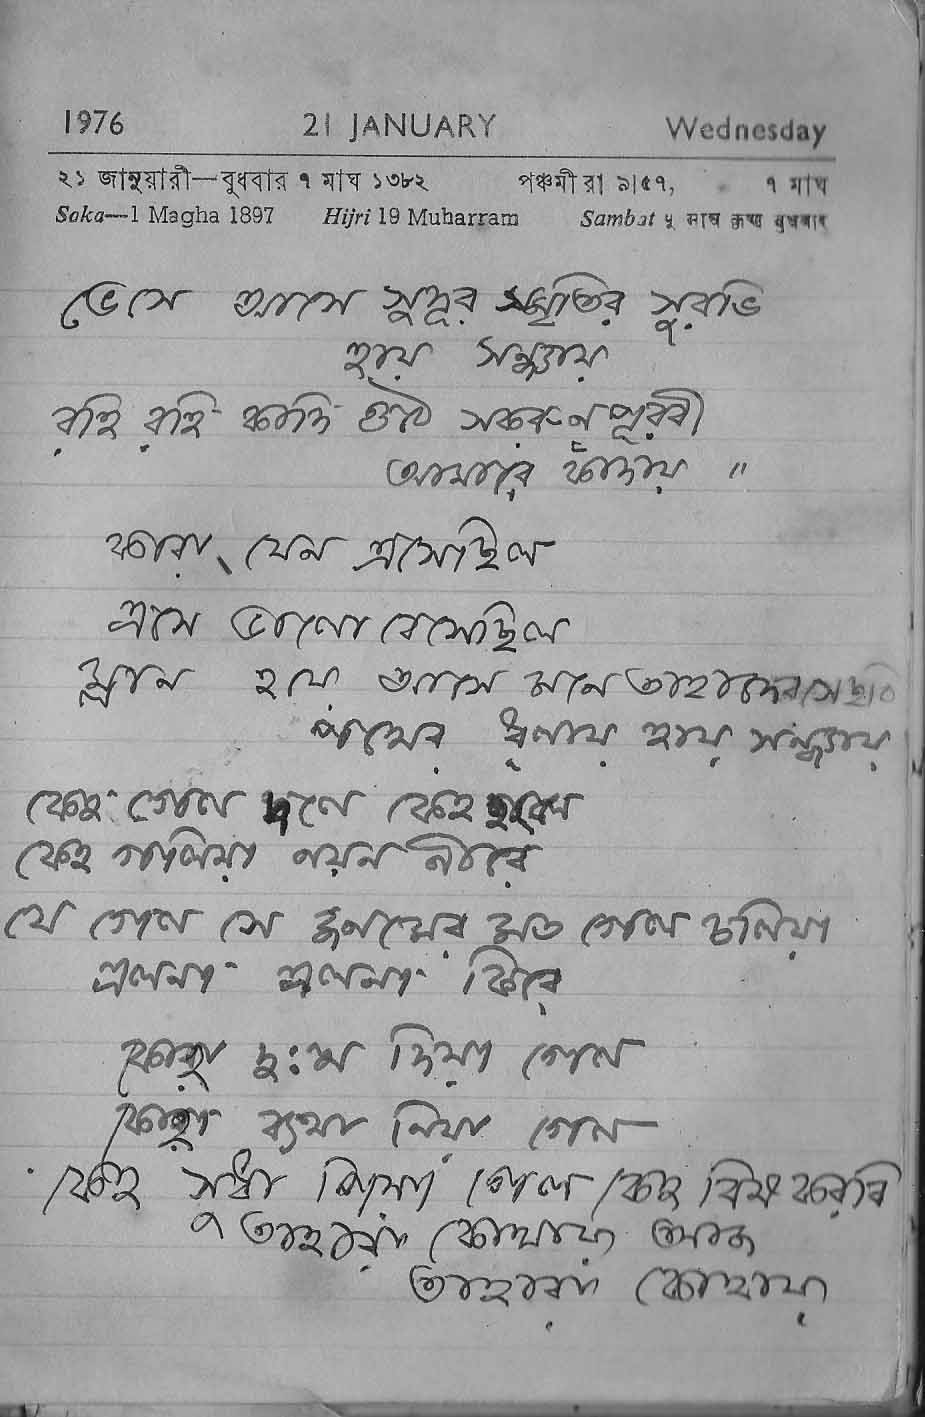 1976 21 JANUARY Wednesday
২১ জানুয়ারী—বুধবার ৭ মাঘ ১৩৮২ পঞ্চমী রা ৯।৫৭, ৭ মাঘ
Saka—1 Magha 1897 Hijri 19 Muharram Sambat ५ माघ कृष्ण बुधवार
ভেসে আসে সুদূর স্মৃতির সুরভি
হায় সন্ধ্যায়
রহি রহি কাঁদি ওঠে সকরুণ পূরবী
আমারে কাঁদায় "
কারা যেন এসেছিল
এসে ভালোবেসেছিল
ম্লান হয়ে আসে মনে তাহাদের সে ছবি
পথের ধূলায় হায় সন্ধ্যায়
কেহ গেল দ'লে কেহ
কেহ গলিয়া নয়ন নীরে
যে গেল সে জনমের মত গেল চলিয়া
এলনা এলনা ফিরে
কেহ দুঃখ দিয়া গেল
কেহ ব্যথা নিয়া গেল
কেহ সুধা পিয়া গেল কেহ বিষ করবী
তাহারা কোথায় আজ
তাহারা কোথায়